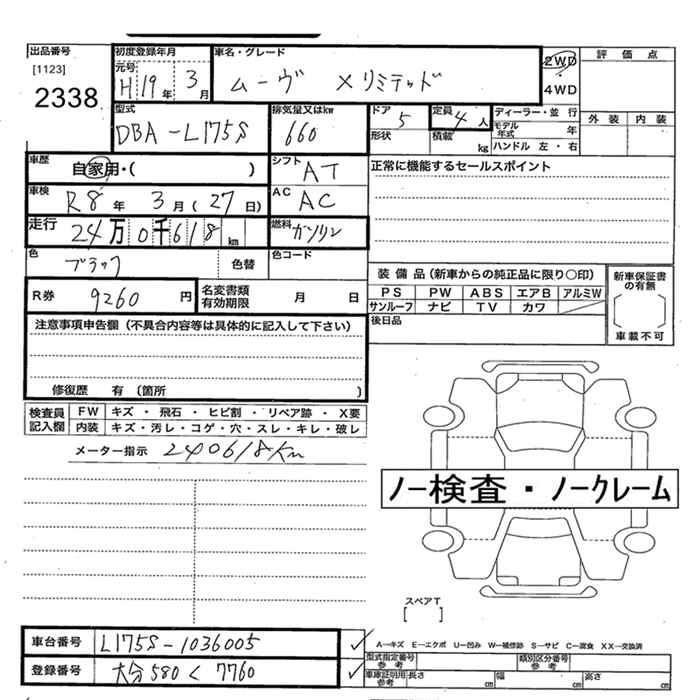 出品番号
[1123]
2338
初度登録年月
元号
H 19年 3月
車名・グレード
ムーヴ X リミテッド
2WD
・
4WD
評価点
外装 内装
型式
DBA-L175S
排気量又はkw
660
ドア 5
形状
定員 4人
積載 kg
ディーラー・並行
モデル年式 年
ハンドル 左・右
車歴
自家用・( )
シフト
AT
正常に機能するセールスポイント
車検
R8年 3月 (27日)
AC
AC
走行
24万0千618km
燃料
ガソリン
色
ブラック
色替
色コード
装備品(新車からの純正品に限り○印)
PS PW ABS エアB アルミW
サンルーフ ナビ TV カワ
新車保証書の有無
車載不可
R券 9260円
名変書類有効期限 月 日
後日品
注意事項申告欄(不具合内容等は具体的に記入して下さい)
修復歴 有(箇所 )
検査員記入欄
FW キズ・飛石・ヒビ割・リペア跡・X要
内装 キズ・汚レ・コゲ・穴・スレ・キレ・破レ
メーター指示 240618Km
ノー検査・ノークレーム
スペアT
[ ]
車台番号 L175S-1036005
登録番号 大分 580 く 7760
A-キズ E-エクボ U-凹み W-補修跡 S-サビ C-腐食 XX-交換済
型式指定番号参考
類別区分番号参考
車庫証明用参考 長さ cm 幅 cm 高さ cm